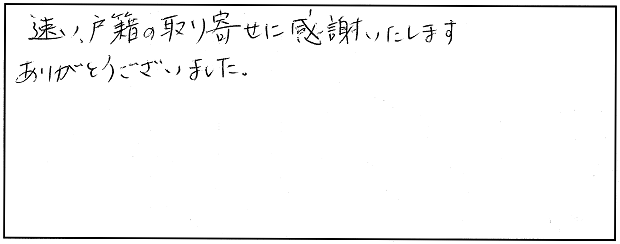 速い、戸籍の取り寄せに感謝いたします
ありがとうございました。